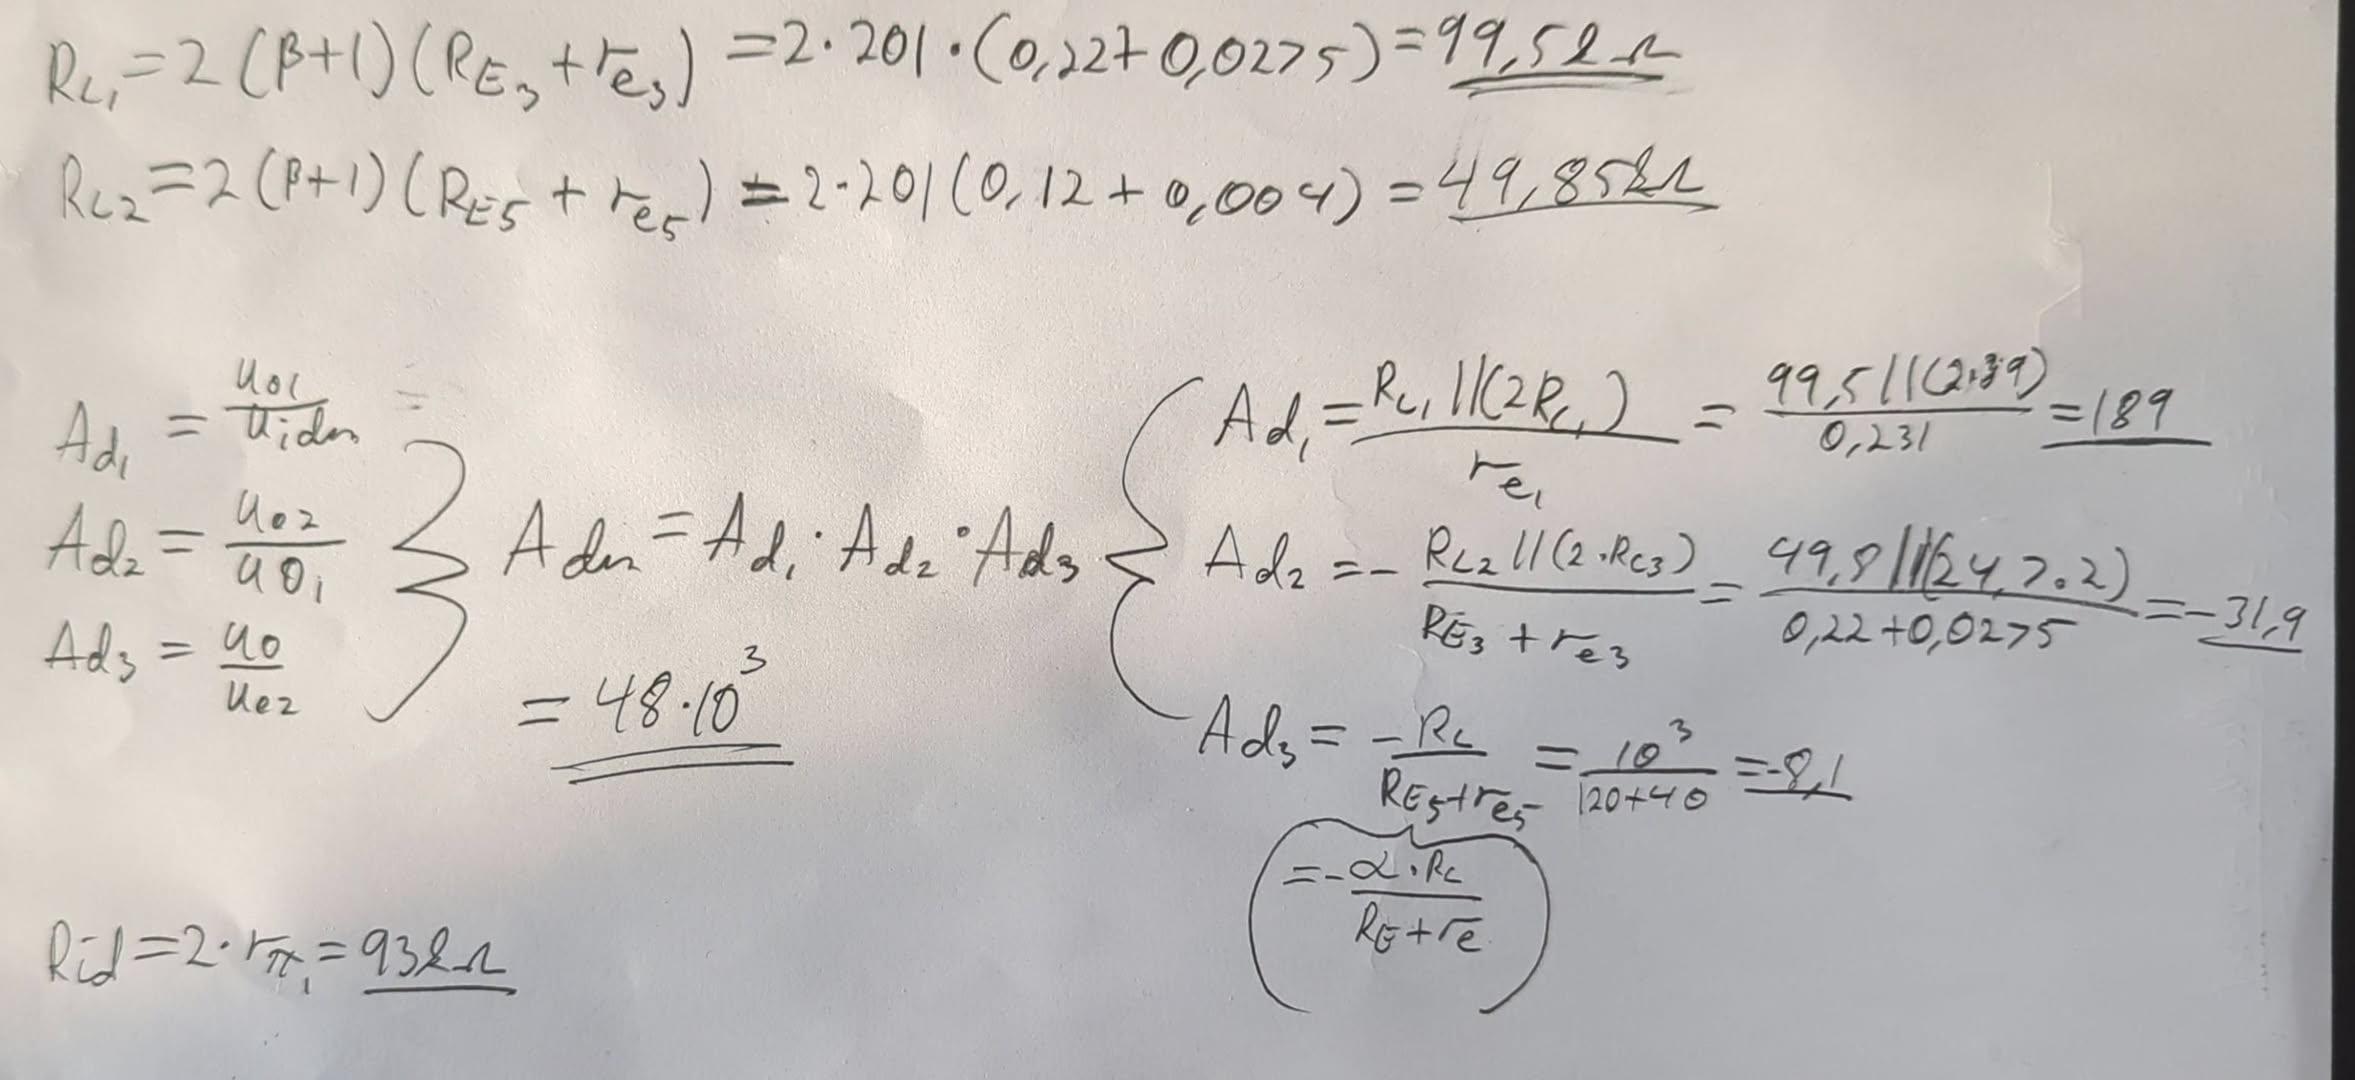 RL₁ = 2 (β+1)(RE₃ + re₃) = 2·201·(0,22+0,0275) = 99,5kΩ
RL2 = 2 (β+1)(RE5 + re5) = 2·201(0,12 + 0,004) = 49,85kΩ
Ad₁ = uo1/uidm =
Ad₂ = uo2/uo₁
Ad₃ = uo/ue2
Adm = Ad₁·Ad₂·Ad₃
= 48·10³
Ad₁ = RL₁||(2RC₁)/re₁ = 99,5||(2·39)/0,231 = 189
Ad₂ = - RL2||(2·RC3)/RE₃ + re3 = 49,8||(24,7·2)/0,22+0,0275 = -31,9
Ad₃ = -RL/RE5+re5 = 10³/120+40 = -8,1
= -α·RL/RE+re
Rid = 2·rπ₁ = 93kΩ